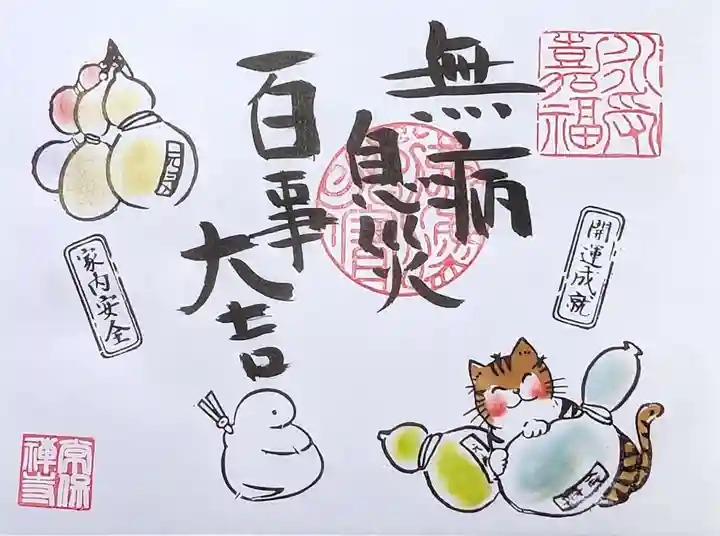 無病
息災
百事
大吉
永受
嘉福
開運成就
家内安全
元気
常保
禅寺